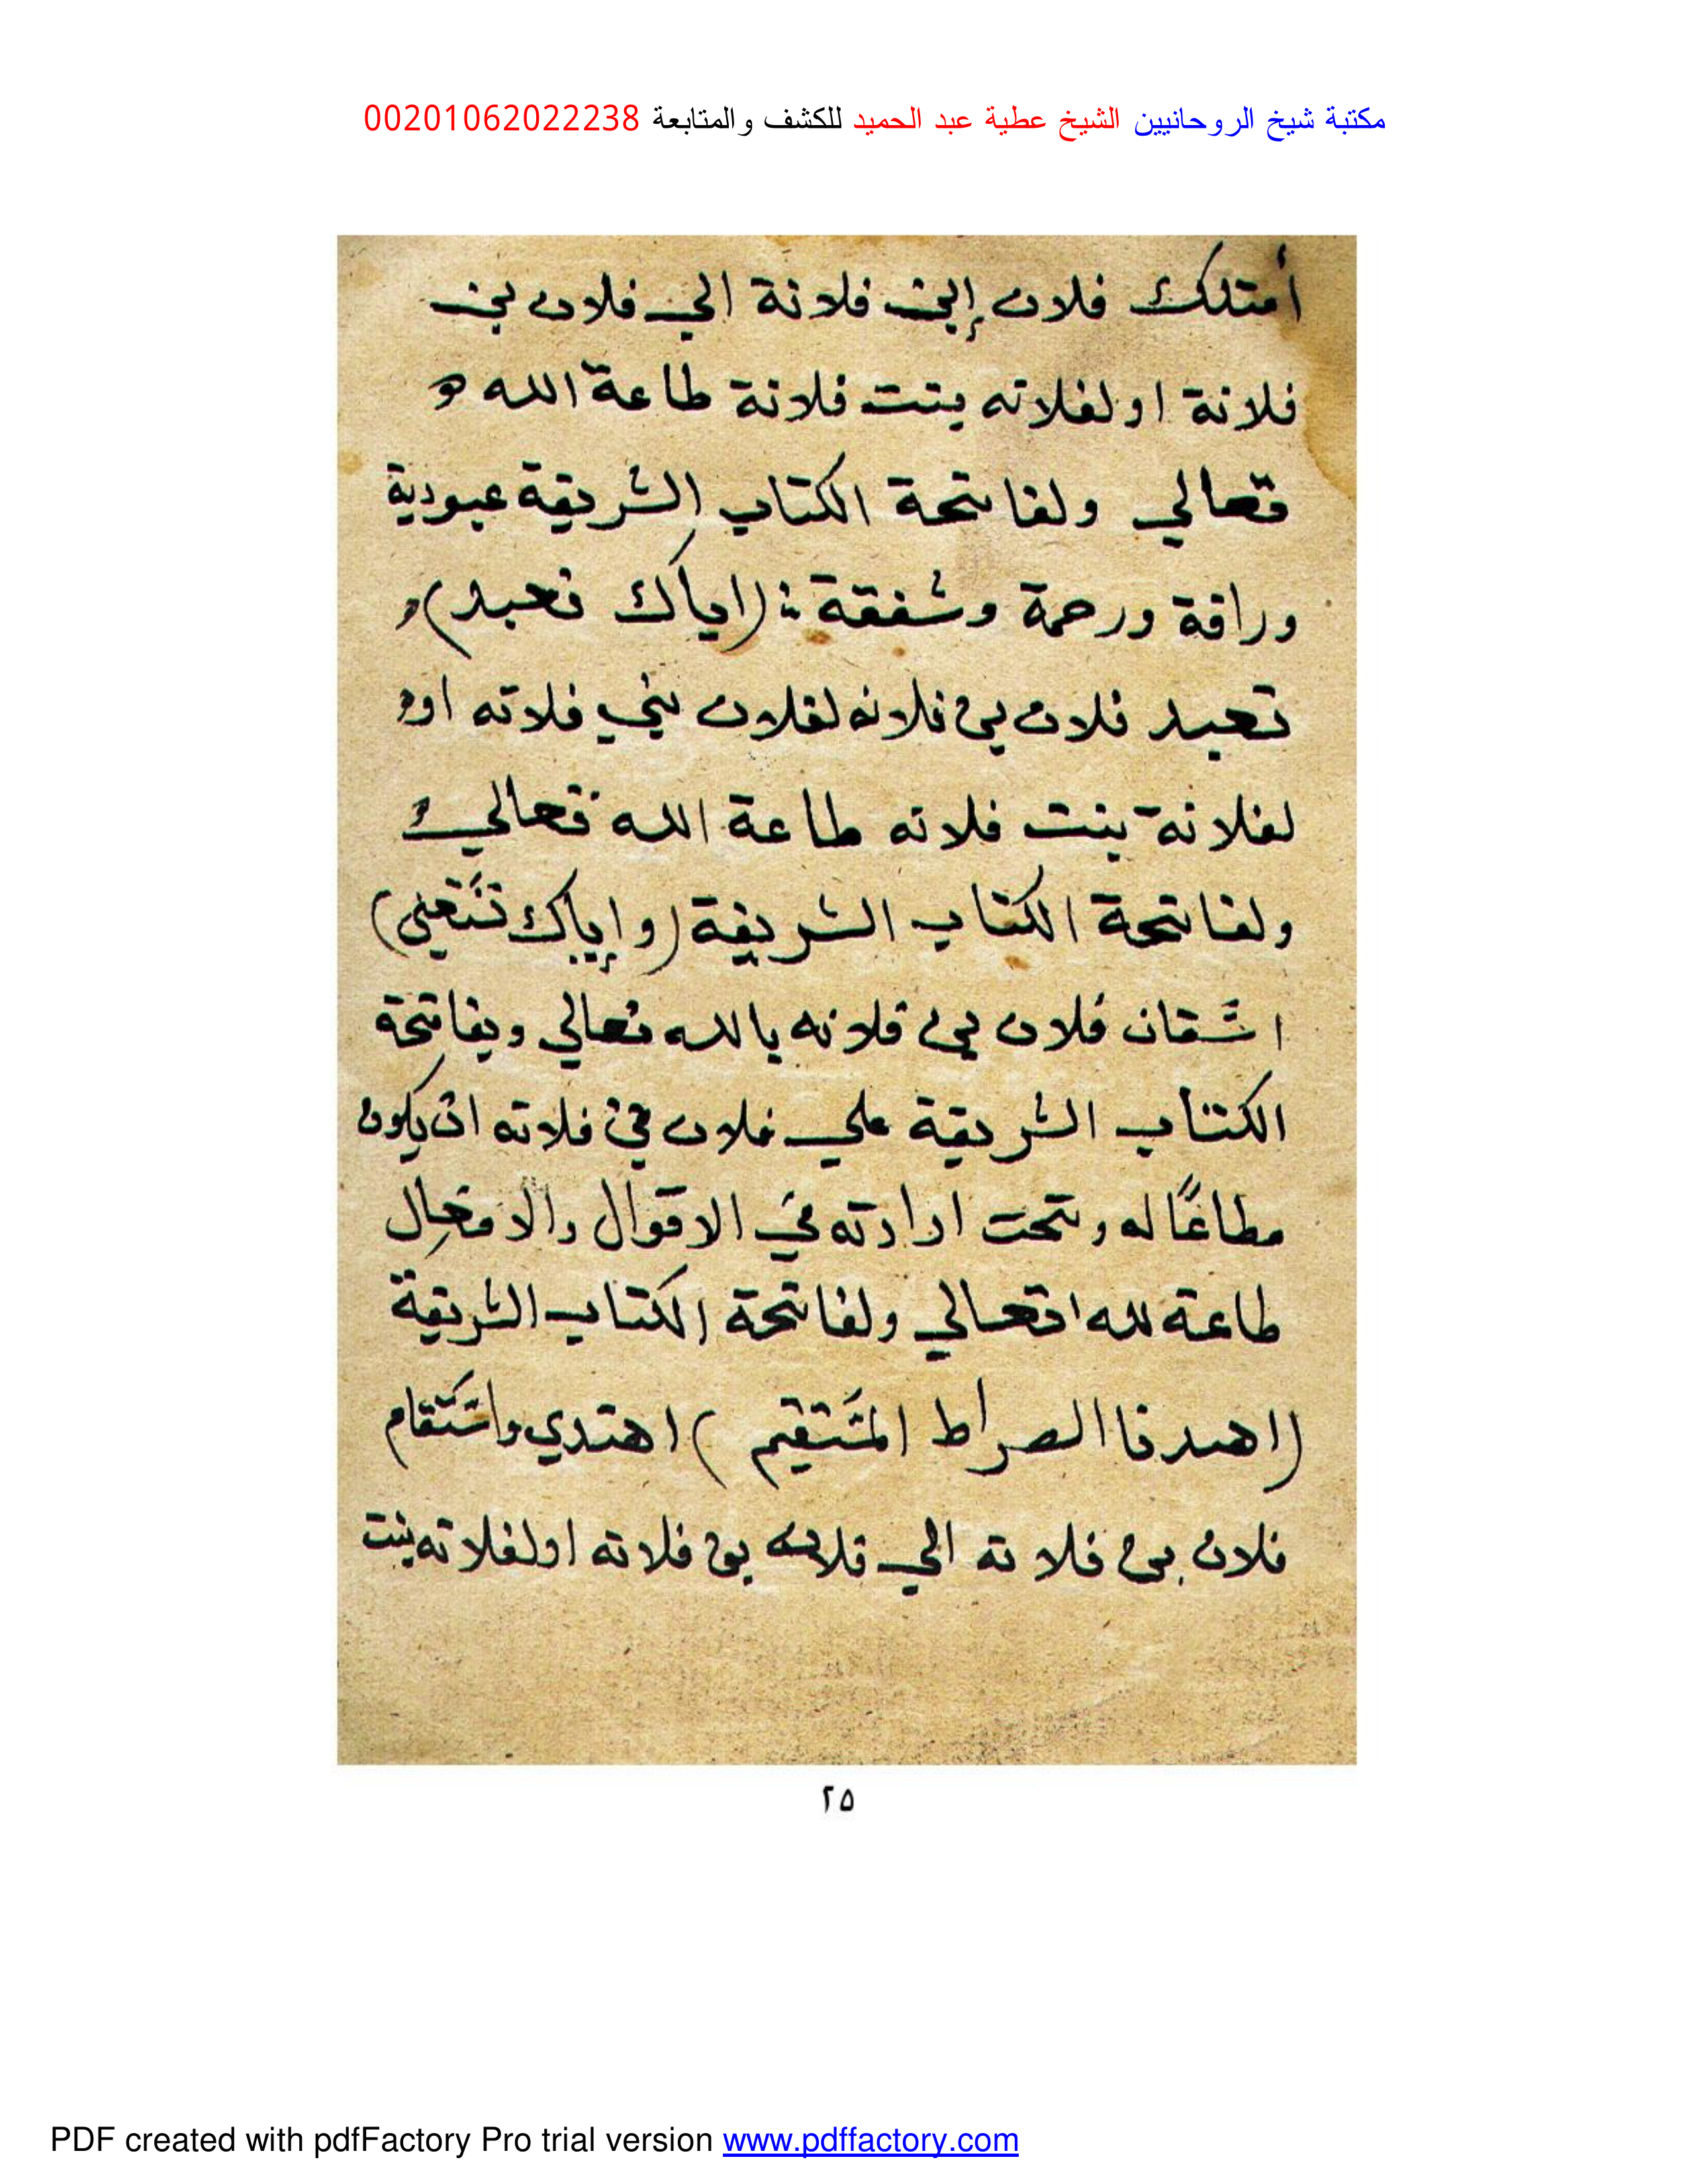 مكتبة شيخ الروحانيين الشيخ عطية عبد الحميد للكشف والمتابعة 00201062022238
أمتلك فلان إبن فلانة الي فلان بن
فلانة او لفلانه بنت فلانة طاعة الله
تعالي ولفاتحة الكتاب الشريفة عبودية
ورافة ورحمة وشفقة : (اياك نعبد)
تعبد فلان بن فلانه لفلان بني فلانه او
لفلانة بنت فلانه طاعة الله تعالي
ولفاتحة الكتاب الشريفة (وإياك نستعين)
استعان فلان بن فلانه بالله تعالي وبفاتحة
الكتاب الشريفة علي فلان بن فلانه ان يكون
مطاعًا له وتحت ارادته في الاقوال والافعال
طاعة لله تعالي ولفاتحة الكتاب الشريفة
(اهدنا الصراط المستقيم) اهتدي واستقام
فلان بن فلانه الي فلان بن فلانه او لفلانه بنت
٢٥
PDF created with pdfFactory Pro trial version www.pdffactory.com